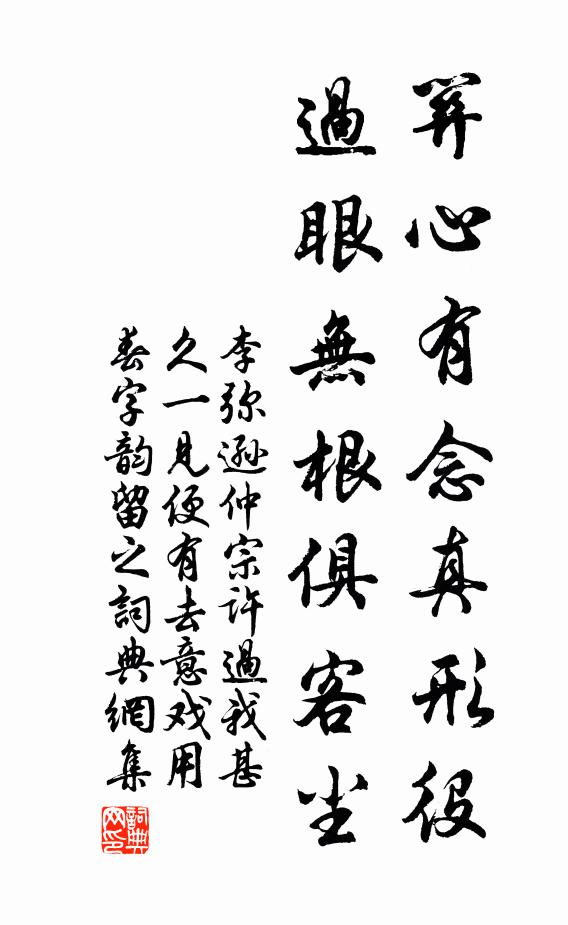 關心有念真形役
過眼無根俱客尘
李弥遜仲宗許過我甚
久一見便有去意戏用
春字韵留之詞典網集
詞典网印